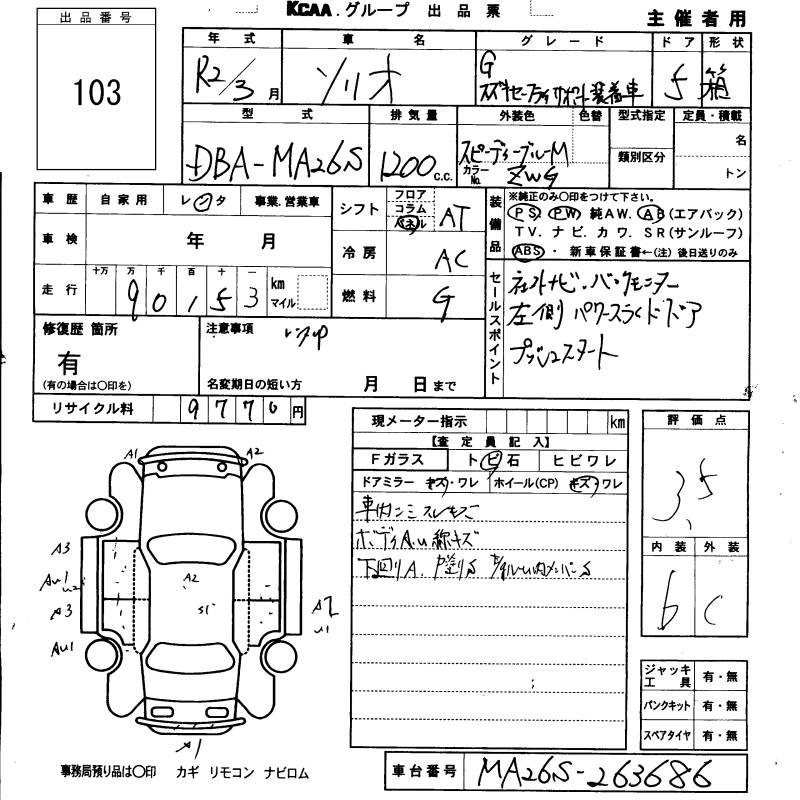 KCAA.グループ 出品票
主催者用
出品番号
103
年式 車名 グレード ドア 形状
R2/3月 ソリオ G 5 箱
スズキセーフティサポート装着車
型式 排気量 外装色 色替 型式指定 定員・積載
DBA-MA26S 1200c.c. スピーディーブルーM 名
カラーNo. ZWG 類別区分 トン
車歴 自家用 レンタ 事業.営業車
シフト フロア コラム パネル AT
装備品
※純正のみ○印をつけて下さい。
PS PW 純AW. AB(エアバック)
TV. ナビ. カワ. SR(サンルーフ)
ABS・ 新車保証書←(注)後日送りのみ
車検 年 月
冷房 AC
走行 十万 万 千 百 十 一
9 0 1 5 3 km マイル
燃料 G
セールスポイント
社外ナビ.バックモニター
左側パワースライドドア
プッシュスタート
修復歴 箇所
有
(有の場合は○印を)
注意事項 レンタUP
名変期日の短い方 月 日まで
リサイクル料 9770円
現メーター指示 km
【査定員記入】
Fガラス トビ石 ヒビワレ
ドアミラー キズ・ワレ ホイール(CP) キズ・ワレ
車内シミスレキズ
ボディA.U線キズ
下回りA.
評価点
3.5
内装 外装
b C
A1 A2
A3
AU1
U2
A3
AU1
A2
S1
A2
U1
A1
ジャッキ工具 有・無
パンクキット 有・無
スペアタイヤ 有・無
事務局預り品は○印 カギ リモコン ナビロム
車台番号 MA26S-263686